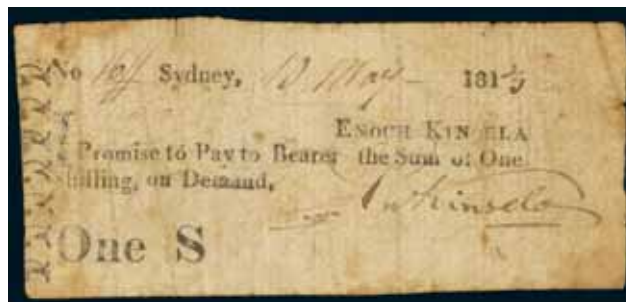 No 197 Sydney, 10 May 1813
ENOCH KINSELA
I Promise to Pay to Bearer the Sum of One
Shilling, on Demand,
En Kinsela
One S